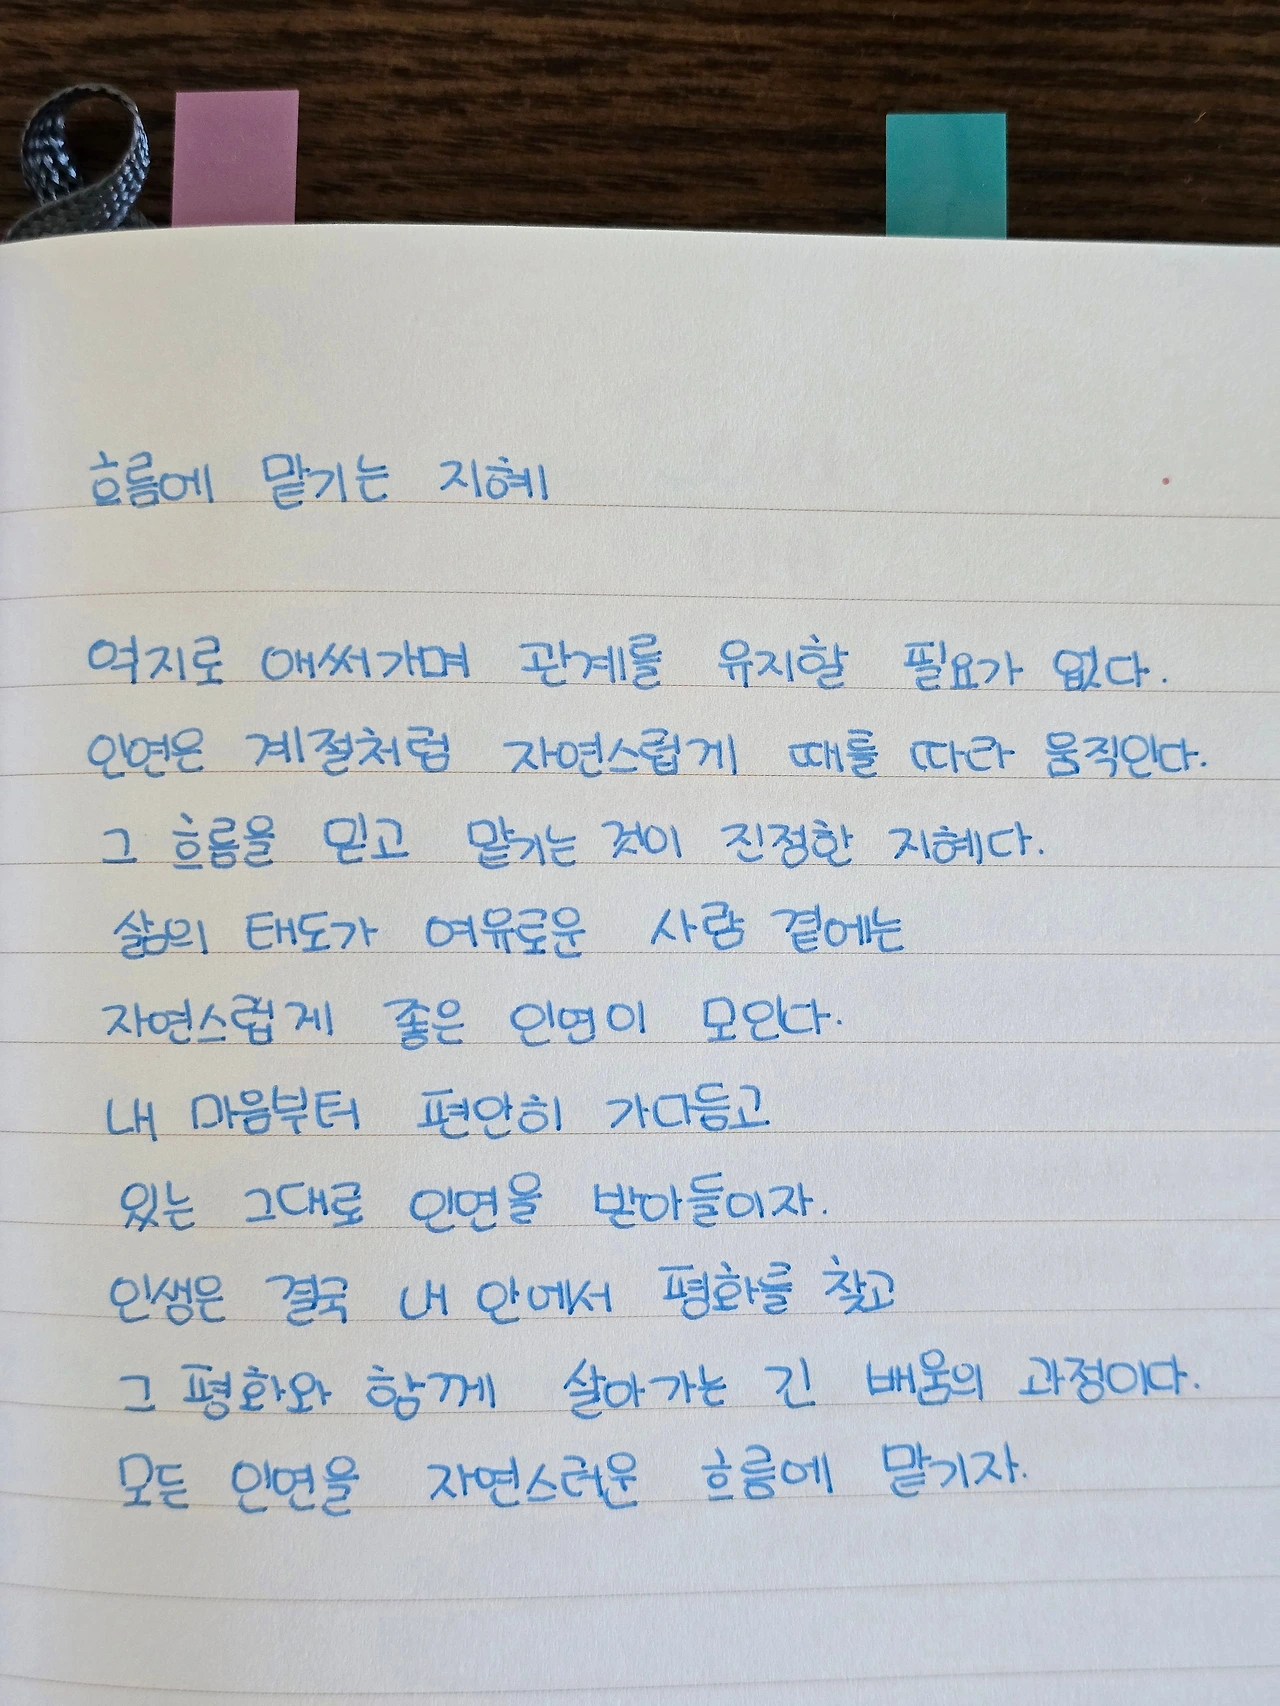 흐름에 맡기는 지혜
억지로 애써가며 관계를 유지할 필요가 없다.
인연은 계절처럼 자연스럽게 때를 따라 움직인다.
그 흐름을 믿고 맡기는 것이 진정한 지혜다.
삶의 태도가 여유로운 사람 곁에는
자연스럽게 좋은 인연이 모인다.
내 마음부터 편안히 가다듬고
있는 그대로 인연을 받아들이자.
인생은 결국 내 안에서 평화를 찾고
그 평화와 함께 살아가는 긴 배움의 과정이다.
모든 인연을 자연스러운 흐름에 맡기자.